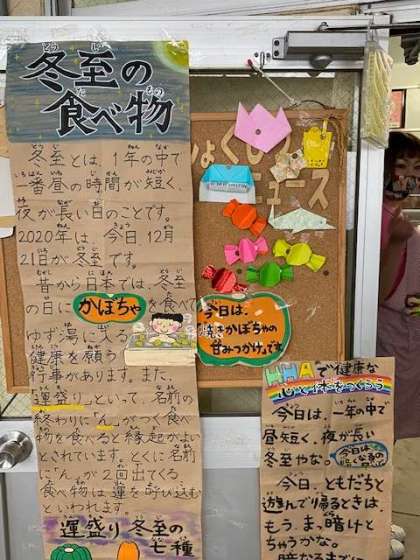 冬至の
食べ物
冬至とは、1年の中で
一番昼の時間が短く、
夜が長い日のことです。
2020年は、今日12月
21日が冬至です。
昔から日本では、冬至
の日にかぼちゃを食べて
ゆず湯に入る
健康を願う
行事があります。また、
「運盛り」といって、名前の
終わりに「ん」がつく食べ
物を食べると縁起がよい
とされています。とくに名前
に「ん」が2回出てくる
食べ物は運を呼び込む
といわれます。
運盛り 冬至の
七種
ニュース
今日は、
焼きかぼちゃの
甘みつかけです
HHAで健康な
心と体をつくろう
今日は、一年の中で
昼短く、夜が長い
冬至やな。
今日、ともだちと
遊んで帰るときは、
もう、まっ暗けと
ちゃうかな。